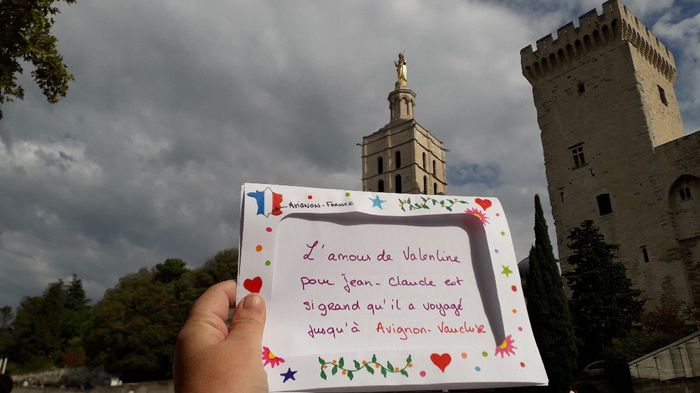 AVIGNON-FRANCE
L'amour de Valentine
pour jean-Claude est
si grand qu'il a voyagé
jusqu'à Avignon-Vaucluse